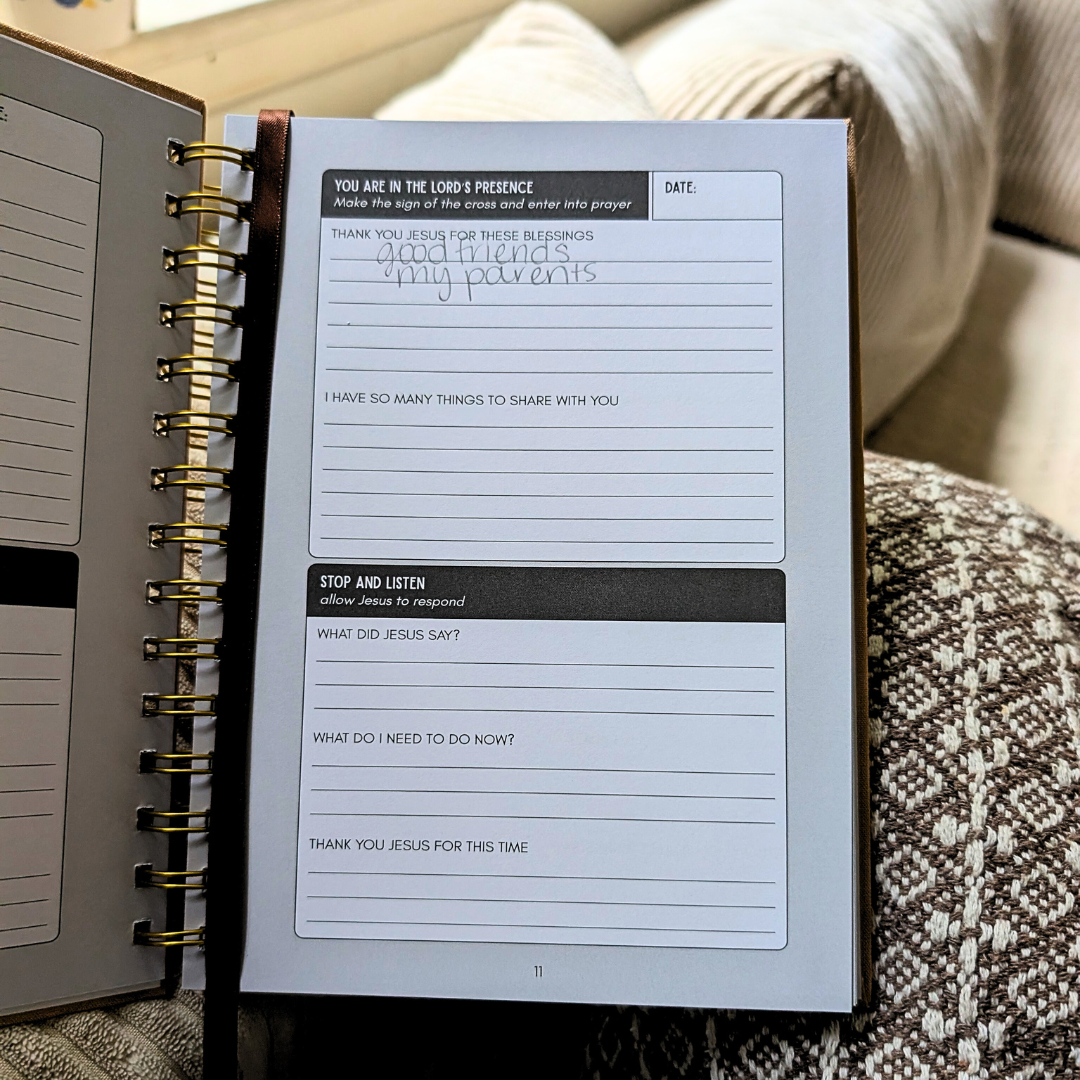 E:
YOU ARE IN THE LORD'S PRESENCE
Make the sign of the cross and enter into prayer
DATE:
THANK YOU JESUS FOR THESE BLESSINGS
good friends
my parents
I HAVE SO MANY THINGS TO SHARE WITH YOU
STOP AND LISTEN
allow Jesus to respond
WHAT DID JESUS SAY?
WHAT DO I NEED TO DO NOW?
THANK YOU JESUS FOR THIS TIME
11